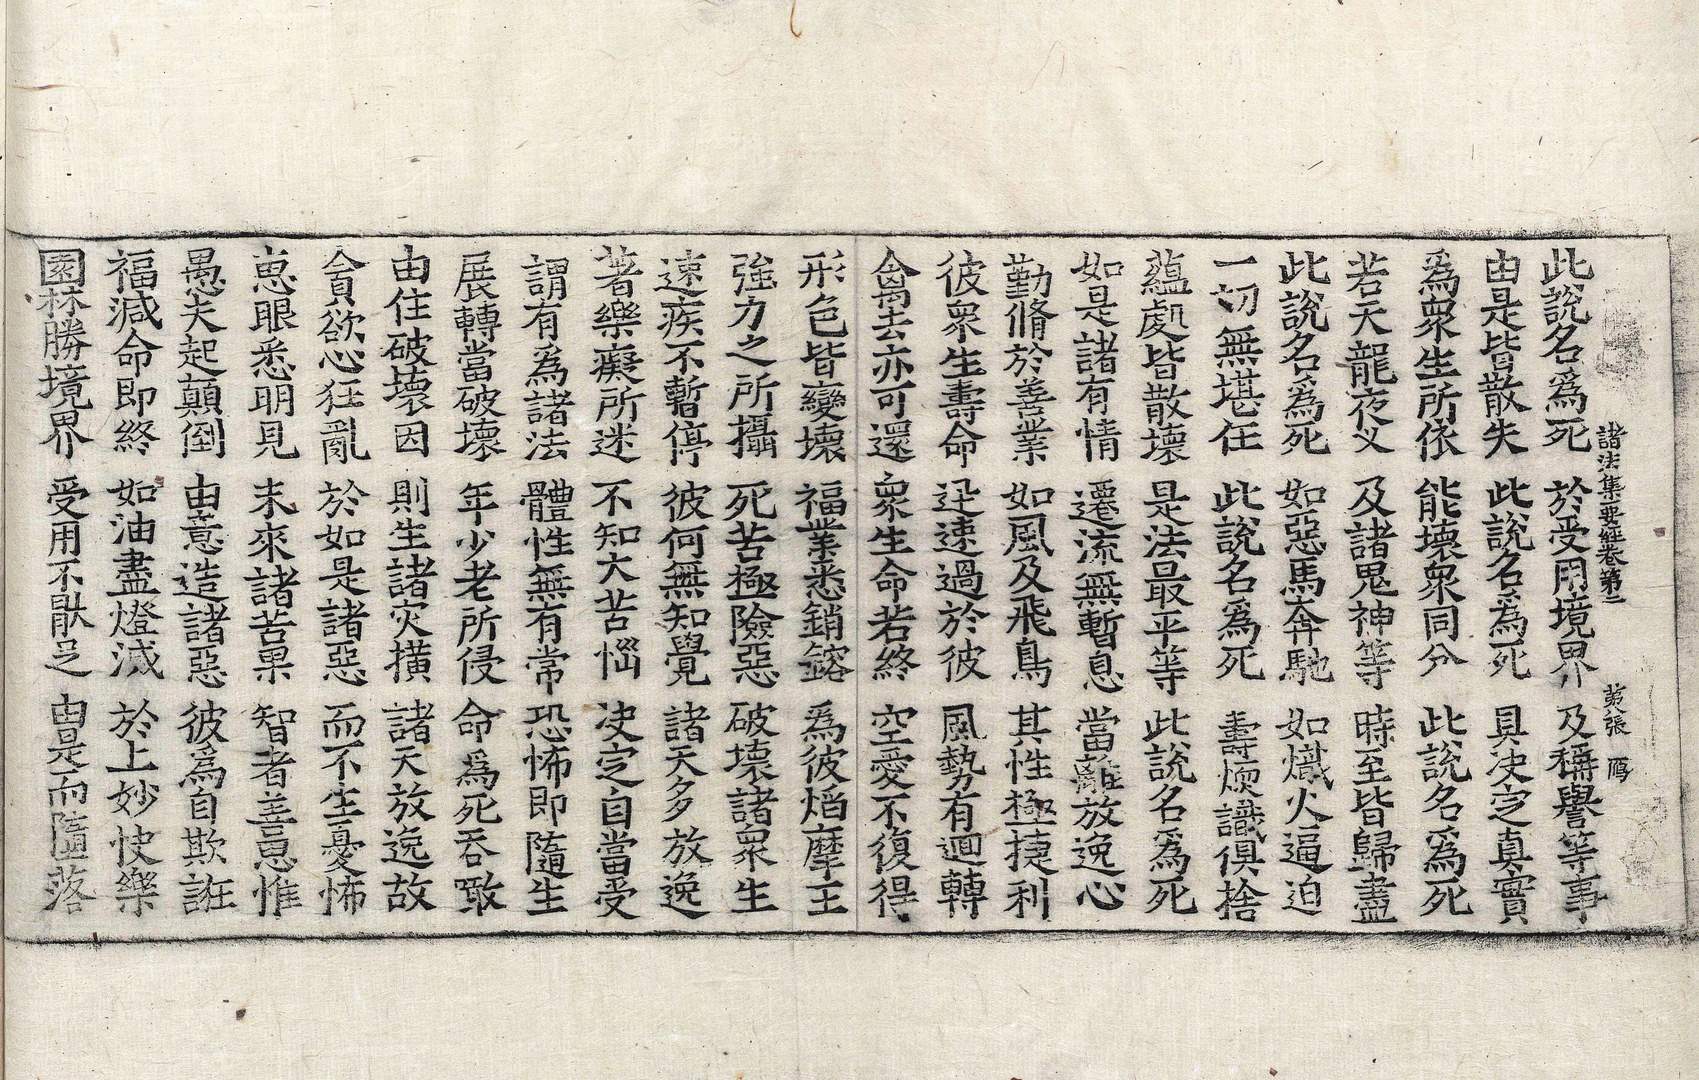 諸法集要經卷第二 第八張 鴈
此說名爲死 於受用境界 及稱譽等事
由是皆散失 此說名爲死 具決定真實
爲衆生所依 能壞衆同分 此說名爲死
若天龍夜叉 及諸鬼神等 時至皆歸盡
此說名爲死 如惡馬奔馳 如熾火逼迫
一切無堪任 此說名爲死 壽煗識俱捨
蘊處皆散壞 是法最平等 此說名爲死
如是諸有情 遷流無暫息 當離放逸心
勤脩於善業 如風及飛鳥 其性極捷利
彼衆生壽命 迅速過於彼 風勢有迴轉
禽去亦可還 衆生命若終 空愛不復得
形色皆變壞 福業悉銷鎔 爲彼焰摩王
強力之所攝 死苦極險惡 破壞諸衆生
速疾不暫停 彼何無知覺 諸天多放逸
著樂癡所迷 不知大苦惱 決定自當受
謂有爲諸法 體性無有常 恐怖即隨生
展轉當破壞 年少老所侵 命爲死吞噉
由住破壞因 則生諸灾橫 諸天放逸故
貪欲心狂亂 於如是諸惡 而不生憂怖
惠眼悉明見 未來諸苦果 智者善思惟
愚夫起顛倒 由意造諸惡 彼爲自欺誑
福減命即終 如油盡燈滅 於上妙快樂
園林勝境界 受用不猒足 由是而隨落